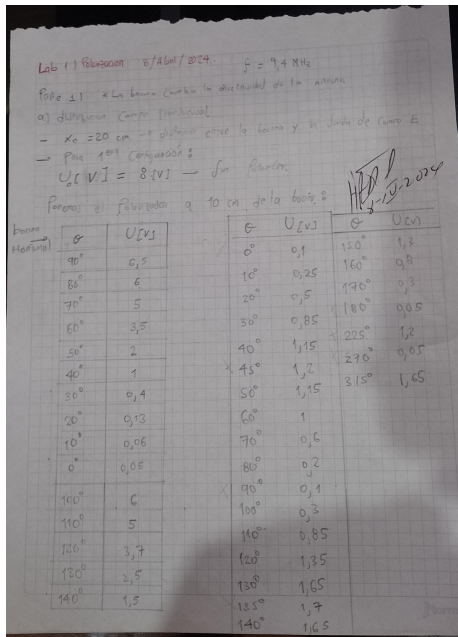 Lab 1 | Polarizacion 5/Abril/2024 f = 9,4 MHz
Parte 1| * La bocina cambia la directividad de la antena
a) dirección campo
- Xe = 20 cm → distancia entre la bocina y la sonda de campo E
→ Para 1era Configuración:
U₀[V] = 8[V] — sin polarizador
Ponemos el Polarizador a 10 cm de la bocina:
5-IV-2024
bocina
Horizontal →
θ U[V]
90° 6,5
80° 6
70° 5
60° 3,5
50° 2
40° 1
30° 0,4
20° 0,13
10° 0,06
0° 0,05
100° 6
110° 5
120° 3,7
130° 2,5
140° 1,5
θ U[V]
0° 0,1
10° 0,25
20° 0,5
30° 0,85
40° 1,15
45° 1,2
50° 1,15
60° 1
70° 0,6
80° 0,2
90° 0,1
100° 0,3
110° 0,85
120° 1,35
130° 1,65
135° 1,7
140° 1,65
θ U[V]
150° 1,3
160° 0,8
170° 0,3
180° 0,05
225° 1,2
270° 0,05
315° 1,65